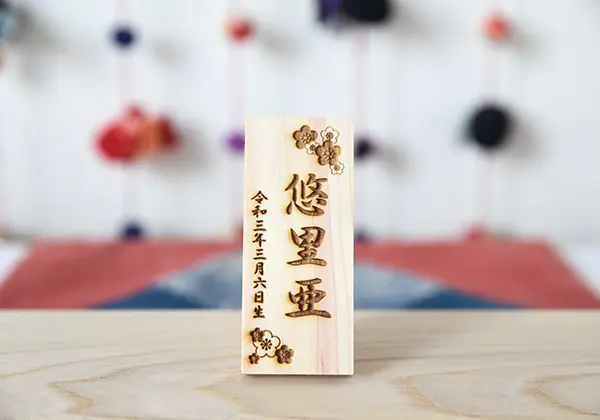 悠里亜
令和三年三月六日生